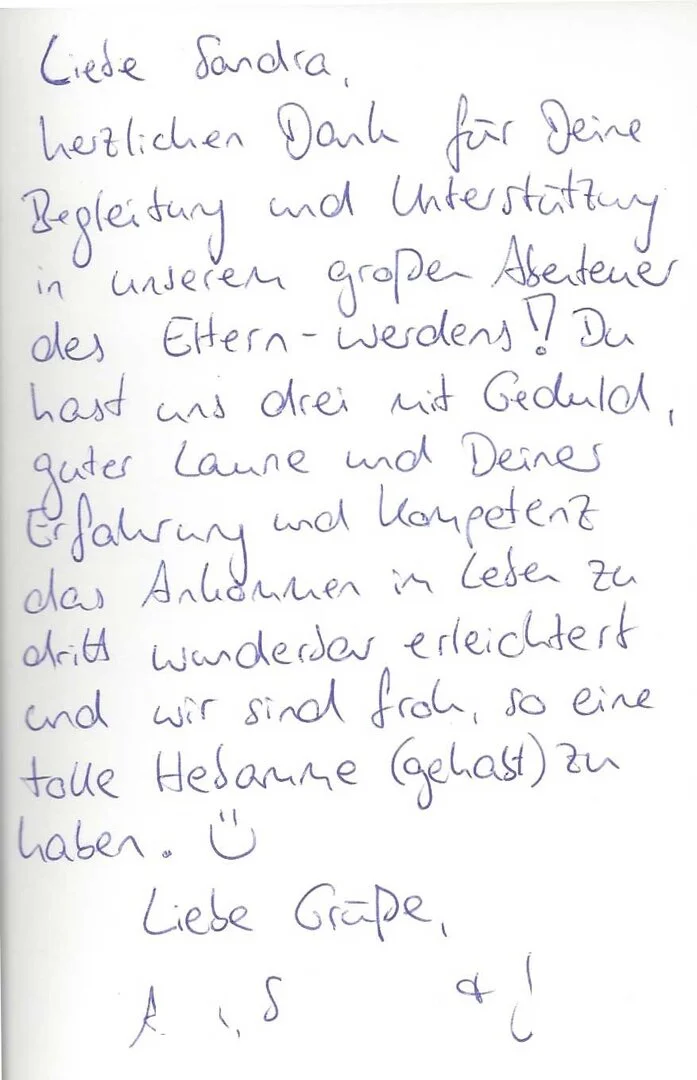 Liebe Sandra,
herzlichen Dank für Deine
Begleitung und Unterstützung
in unserem großen Abenteuer
des Eltern-werdens! Du
hast uns drei mit Geduld,
guter Laune und Deiner
Erfahrung und Kompetenz
das Ankommen im Leben zu
dritt wunderbar erleichtert
und wir sind froh, so eine
tolle Hebamme (gehabt) zu
haben. Ü
Liebe Grüße,
A. , S & J